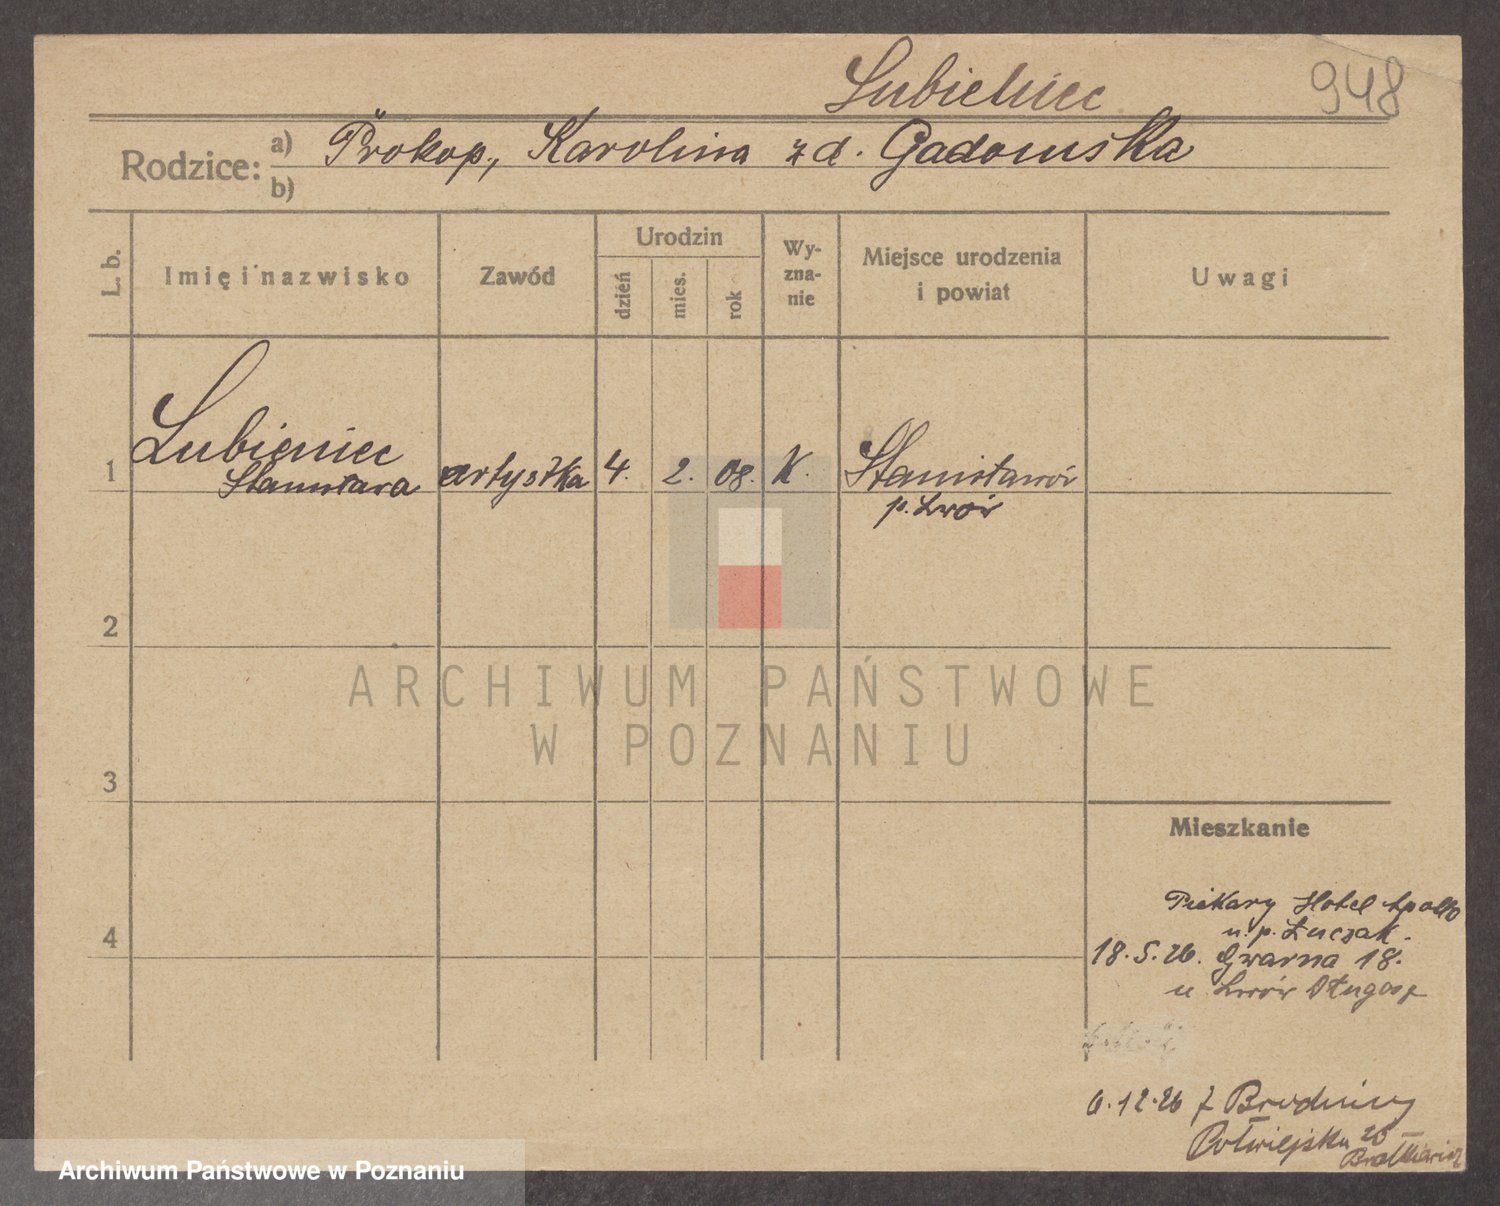 Lubieniec
948
Rodzice: a) Prokop, Karolina z d. Gadomska
b)
L. b.
Imię i nazwisko
Zawód
Urodzin
dzień
mies.
rok
Wy-
zna-
nie
Miejsce urodzenia
i powiat
Uwagi
1
Lubieniec
Stanisława
artystka
4.
2.
08.
K.
Stanisławów
p. Lwów
2
3
4
Mieszkanie
Piekary Hotel Apollo
u. p. Łuczak.
18.5.26. Gwarna 18.
u Lwów Długosz
6.12.26 z Brodnicy
Półwiejska 20
ARCHIWUM PAŃSTWOWE
W POZNANIU
Archiwum Państwowe w Poznaniu